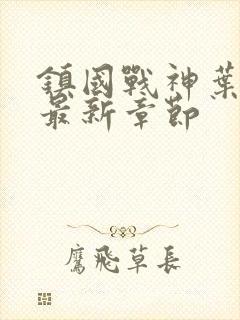 鎮國戰神葉
最新章節
鷹飛草長